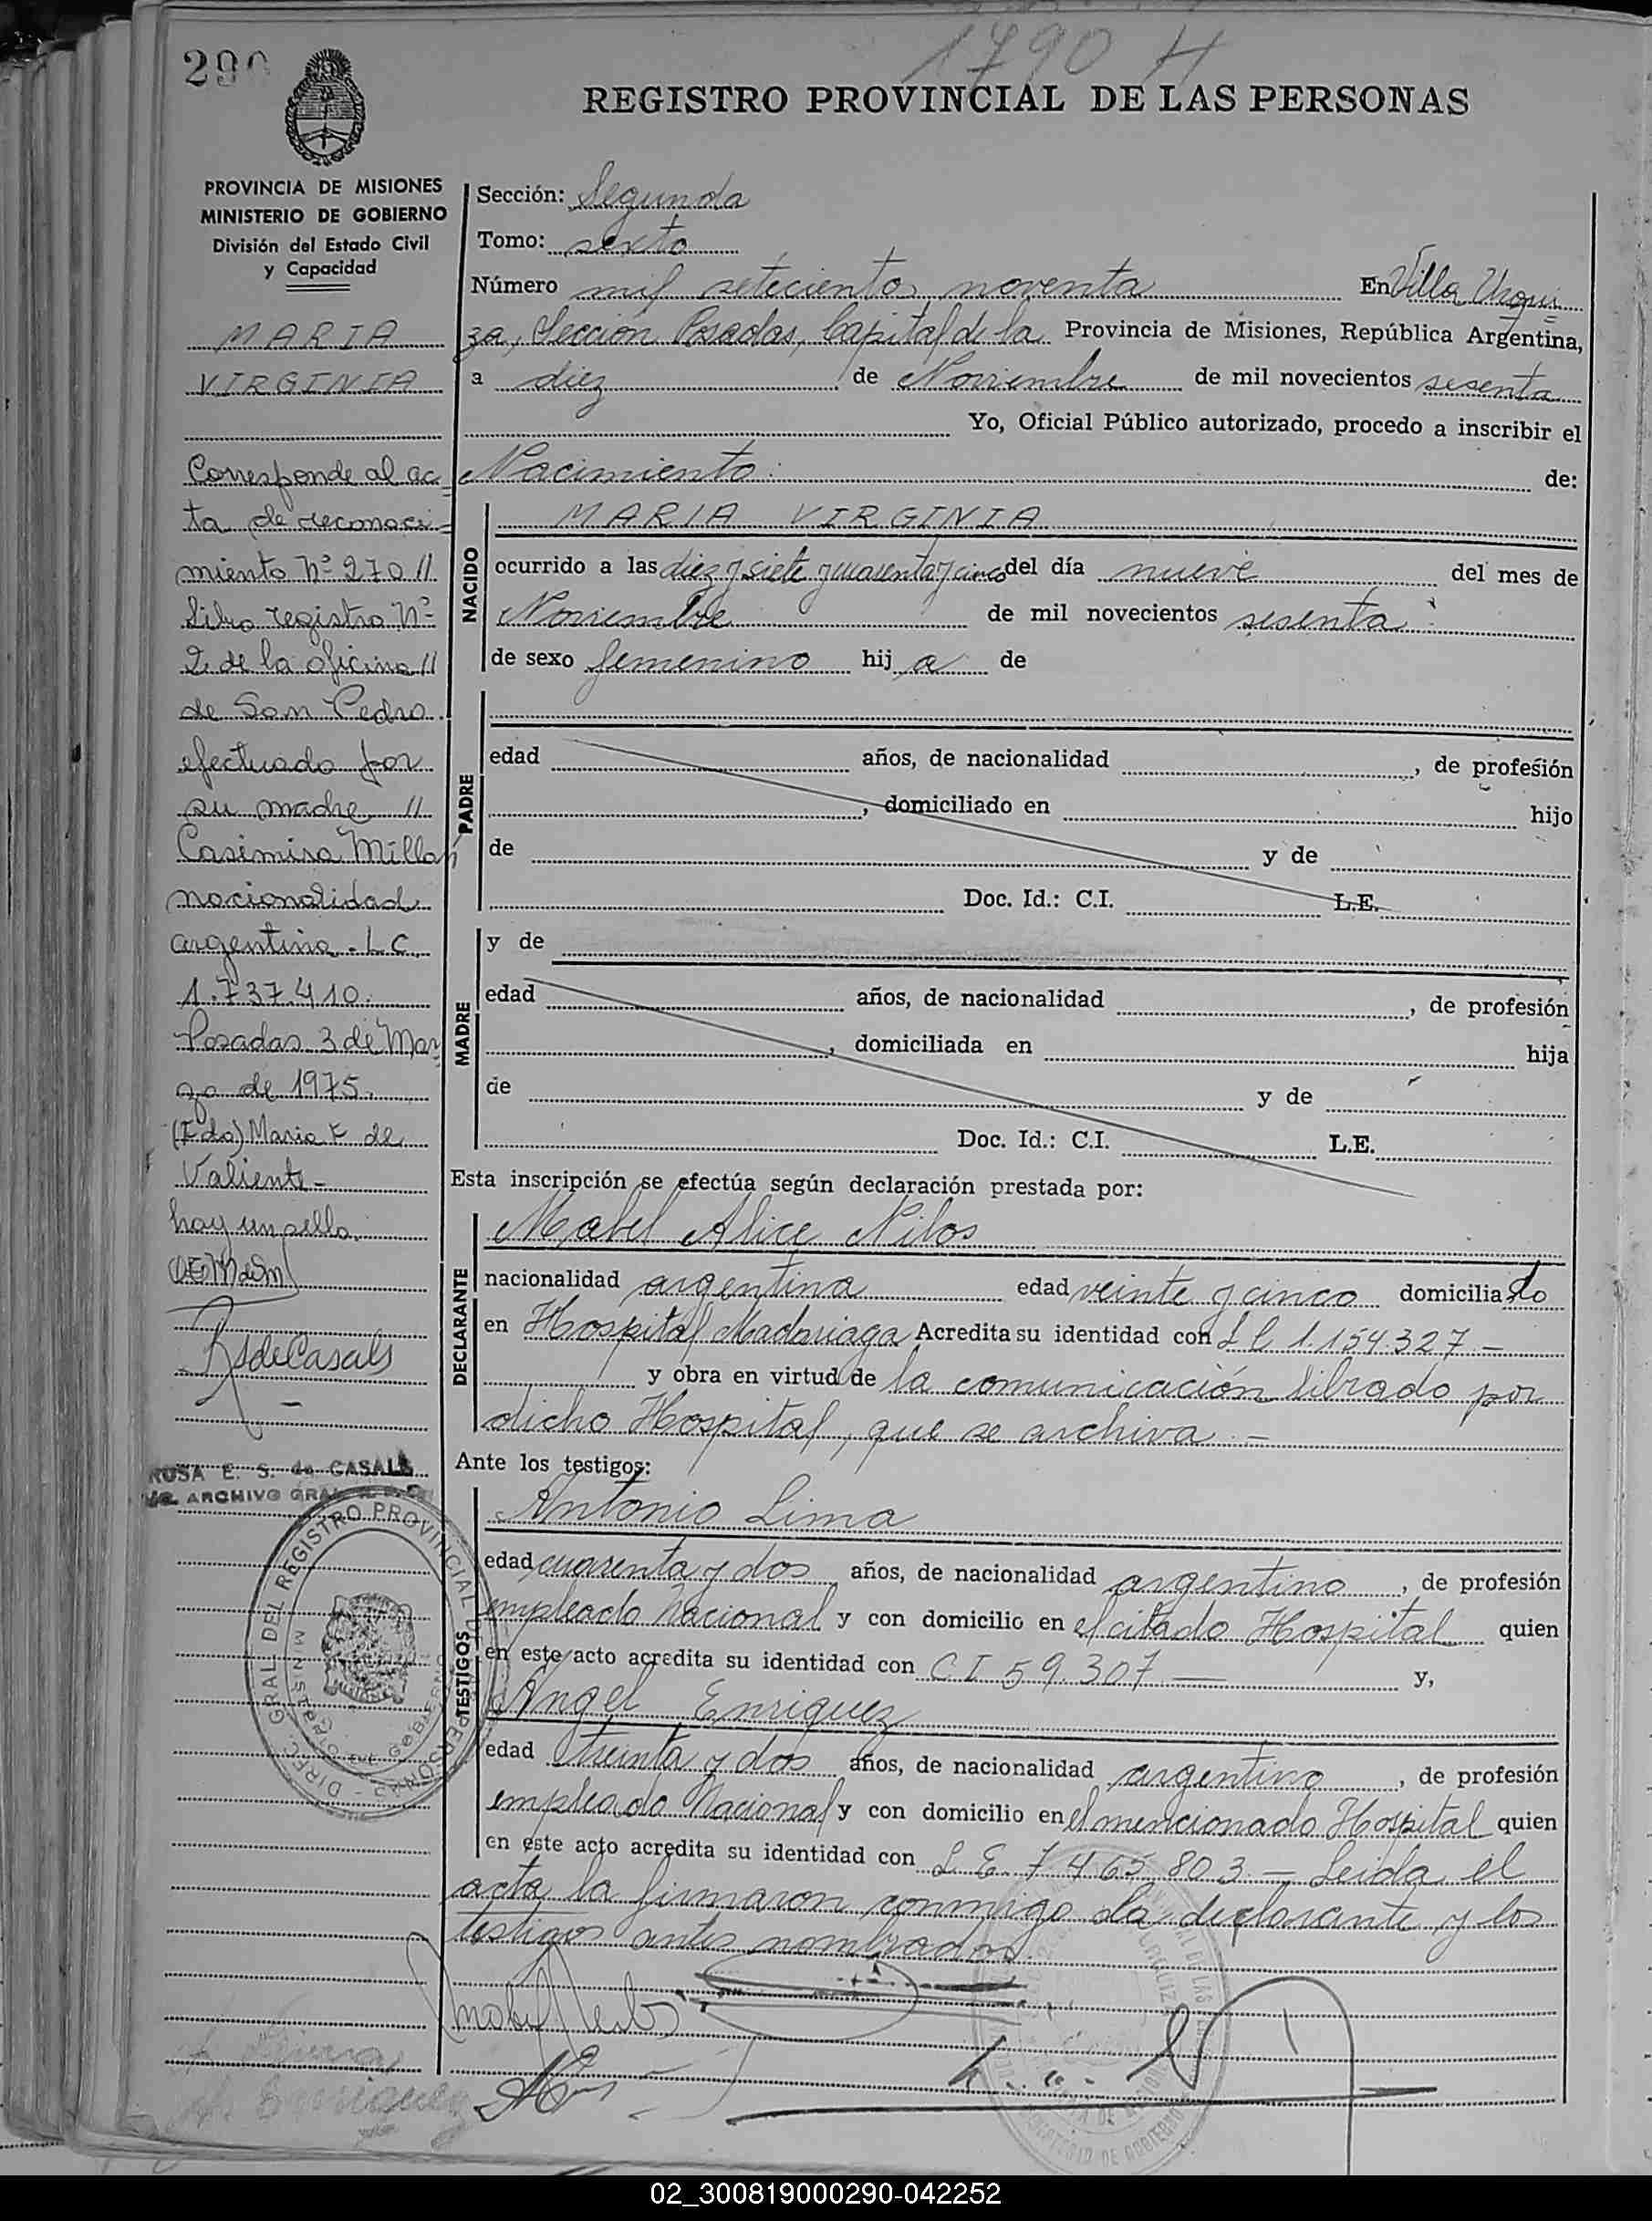 290
1790 H
REGISTRO PROVINCIAL DE LAS PERSONAS
PROVINCIA DE MISIONES
MINISTERIO DE GOBIERNO
División del Estado Civil
y Capacidad
MARIA
VIRGINIA
Corresponde al ac
ta de reconoci=
miento Nº 270 //
Libro registro Nº
2 de la oficina //
de San Pedro.
efectuado por
su madre //
Casimira Millan
nacionalidad
argentina. L C
1.737.410.
Posadas 3 de Mar
zo de 1975.
(Fdo) Maria E de
Valiente -
hay un sello.
RSdeCasals
ROSA E. S. de CASALS
ARCHIVO GRAL.
DIREC. GRAL DEL REGISTRO PROVINCIAL DE LAS PERSONAS
MINISTERIO DE GOBIERNO
Sección: Segunda
Tomo: sexto
Número mil setecientos noventa En Villa Urqui=
za, Sección Posadas, Capital de la Provincia de Misiones, República Argentina,
a diez de Noviembre de mil novecientos sesenta
Yo, Oficial Público autorizado, procedo a inscribir el
Nacimiento: de:
NACIDO
MARIA VIRGINIA
ocurrido a las diez y siete y cuarenta y cinco del día nueve del mes de
Noviembre de mil novecientos sesenta
de sexo femenino hij a de
PADRE
edad años, de nacionalidad , de profesión
, domiciliado en hijo
de y de
Doc. Id.: C.I. L.E.
MADRE
y de
edad años, de nacionalidad , de profesión
, domiciliada en hija
de y de
Doc. Id.: C.I. L.E.
Esta inscripción se efectúa según declaración prestada por:
DECLARANTE
Mabel Alice Nilos
nacionalidad argentina edad veinte y cinco domiciliado
en Hospital Madariaga Acredita su identidad con L C 1.154.327 -
y obra en virtud de la comunicación librado por
dicho Hospital, que se archiva. -
Ante los testigos:
TESTIGOS
Antonio Lima
edad cuarenta y dos años, de nacionalidad argentino, de profesión
empleado Nacional y con domicilio en el citado Hospital quien
en este acto acredita su identidad con C I 59.307 — y,
Angel Enriquez
edad treinta y dos años, de nacionalidad argentino, de profesión
empleado Nacional y con domicilio en el mencionado Hospital quien
en este acto acredita su identidad con L E 7 465 803 - Leida el
acta la firmaron conmigo la declarante y los
testigos antes nombrados.
A. Lima
A. Enriquez
02_300819000290-042252